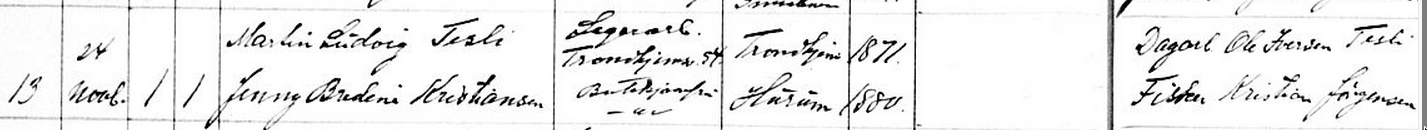 24 Martin Ludvig Tesli Trondhjemsv. 54. Trondhjem 1871. Dagarb. Ole Iversen Tesli
13 Novb. 1 1 Jenny Bredine Kristiansen Butikjomfru Hurum 1880. Fisker Kristian Jørgensen